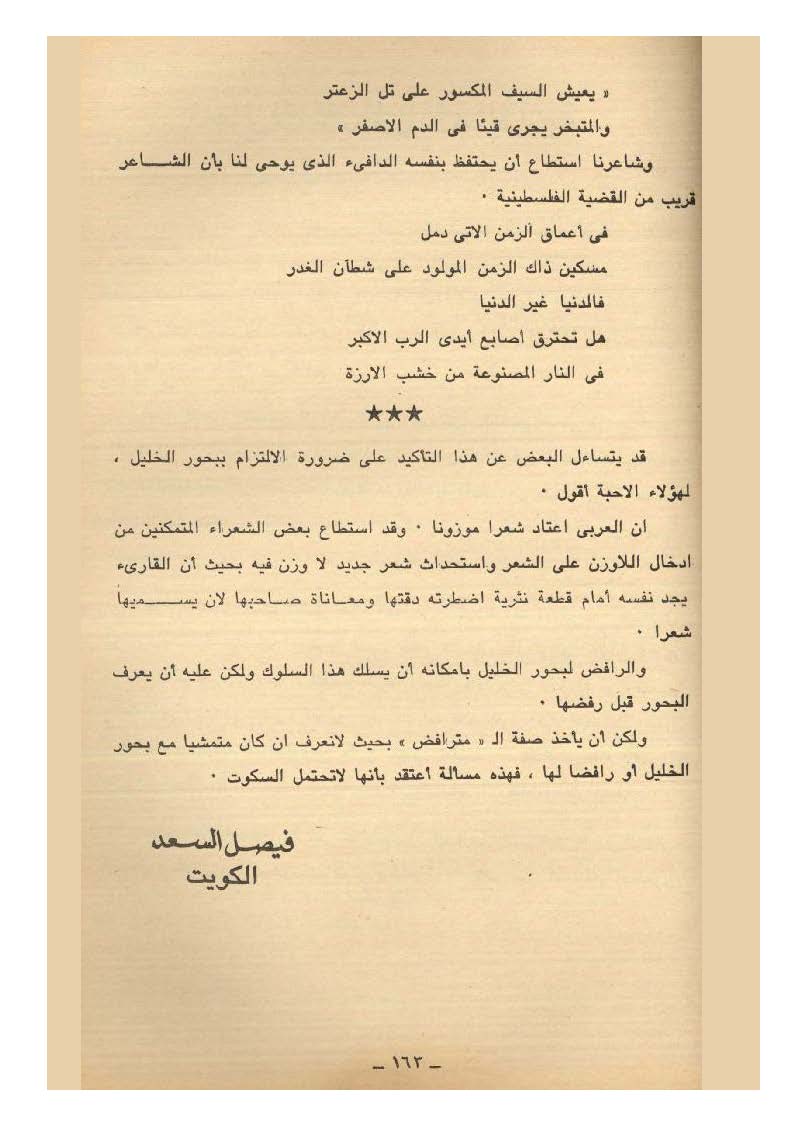 « يعيش السيف المكسور على تل الزعتر
والمتبخر يجرى قيئا فى الدم الاصفر »
وشاعرنا استطاع أن يحتفظ بنفسه الدافىء الذى يوحى لنا بأن الشـــاعر
قريب من القضية الفلسطينية ٠
فى أعماق الزمن الاتى دمل
مسكين ذاك الزمن المولود على شطآن الغدر
فالدنيا غير الدنيا
هل تحترق أصابع أيدى الرب الاكبر
فى النار المصنوعة من خشب الارزة
★★★
قد يتساءل البعض عن هذا التأكيد على ضرورة الالتزام ببحور الخليل ،
لهؤلاء الاحبة أقول ٠
ان العربى اعتاد شعرا موزونا ٠ وقد استطاع بعض الشعراء المتمكنين من
ادخال اللاوزن على الشعر واستحداث شعر جديد لا وزن فيه بحيث أن القارىء
يجد نفسه أمام قطعة نثرية اضطرته دقتها ومعـاناة صـاحبها لان يســـميها
شعرا ٠
والرافض لبحور الخليل بامكانه أن يسلك هذا السلوك ولكن عليه أن يعرف
البحور قبل رفضها ٠
ولكن أن يأخذ صفة الـ « مترافض » بحيث لانعرف ان كان متمشيا مع بحور
الخليل أو رافضا لها ، فهذه مسألة أعتقد بأنها لاتحتمل السكوت ٠
فيصل السعد
الكويت
– ١٦٣ –